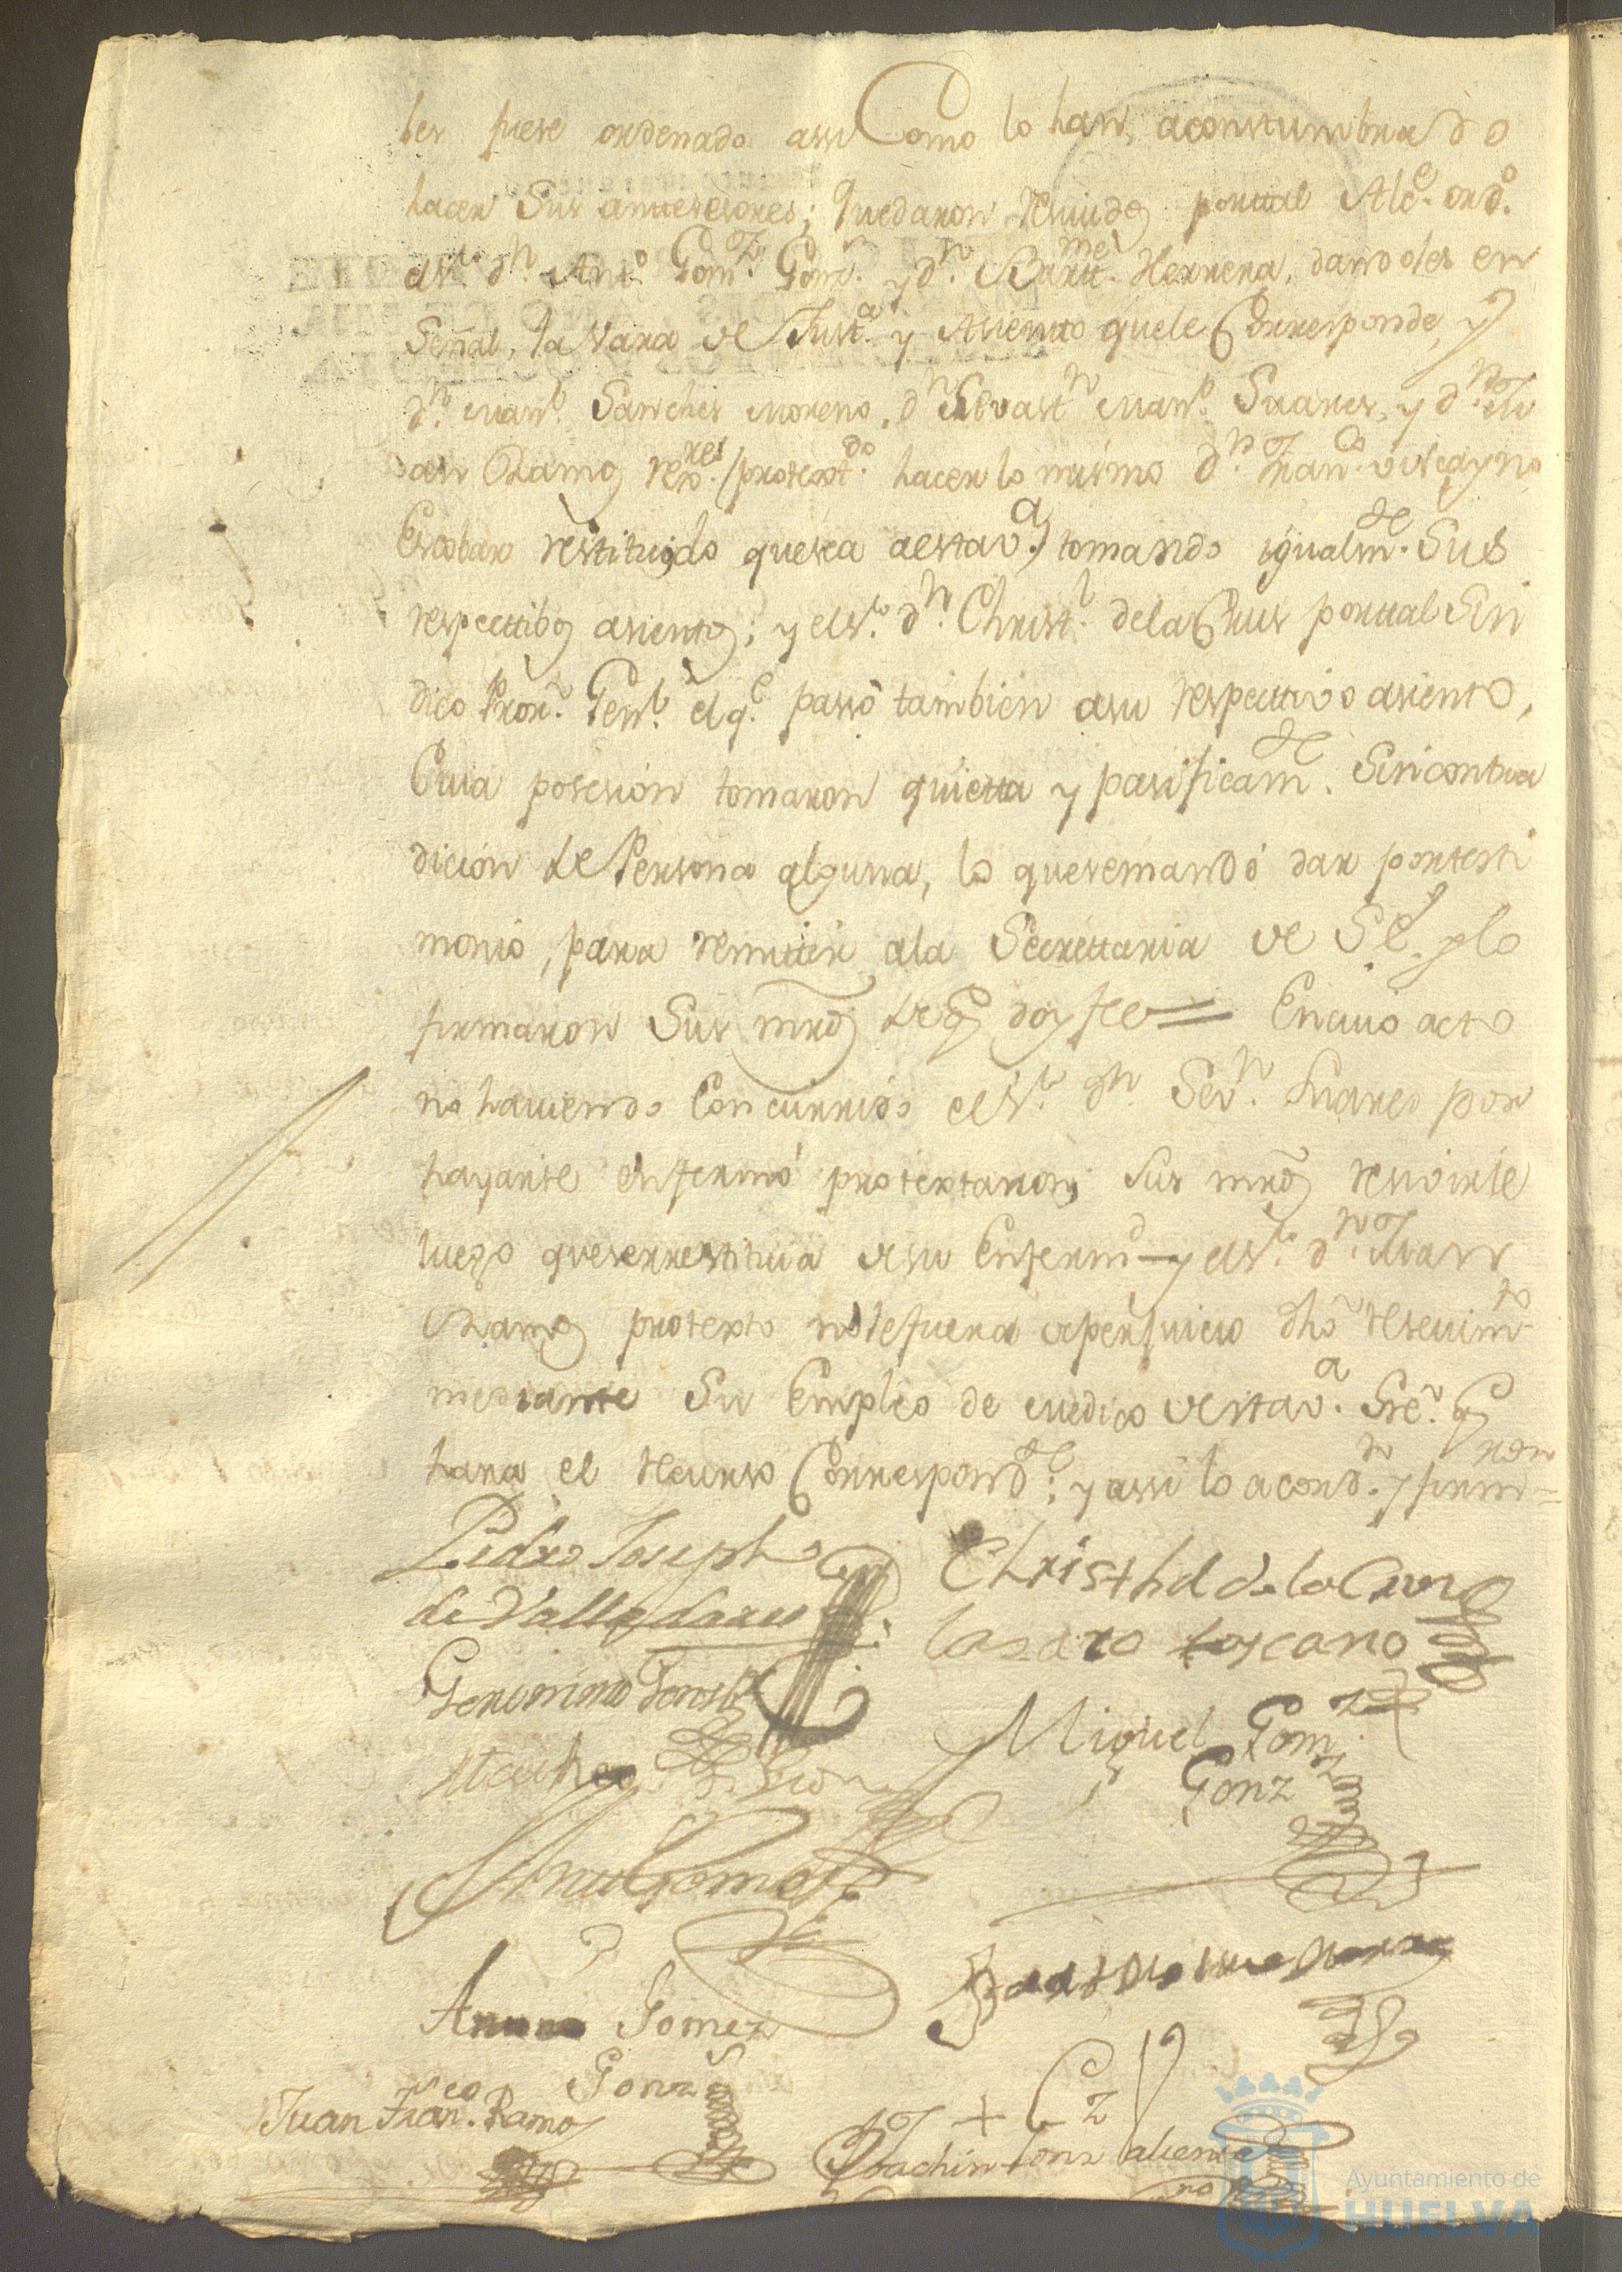 les fuese ordenado assi Como lo han aconstumbrado
hacer Sus antesesores; quedaron resiuidos por tal Alce. ordo.
el sr. dn. Anto. Gomz. Gonz. y dn. Bartme. Herrera, dandoles en
Señal, la Vara de Justa. y Asiento que le Corresponde, y
dn. Manl. Sanches Moreno, dn Sevastn Manl. Suares, y dn. Ju
an Ramos rexres. (protextdo. hacer lo mismo dn. Franco. Viscayno
Escobar restituydo que sea a esta va.) tomando igualmte. Sus
respecttibos asientos; y el sr. dn. Christl. de la Crus por tal Sin
dico Pror. Genl. el qe. passó tambien a su respecttivo asiento,
Cuia posesion tomaron quietta y pasificamte. Sin contra
dición de Persona alguna, lo que se mandó dar por testi
monio, para remitir a la Secrettaria de S.E. y lo
firmaron Sus mrds de q doy fee = En cuio acto
no haviendo Concurrido el Sr. dn. Sevn. Suares por
hayarse enfermo protextaron Sus mrds resivirle
luego que se rrestituia de su Enfermd y el sr. dn. Juan
Ramos protexto no le fuera de perjuicio dho resevimto
mediante Su Empleo de medico de esta va. Sre. q
hara el recurso Correspondte; y assi lo acordn. y firmron =
Pedro Joseph
de Valladares
Christhl de la Cruz
Lasaro toscano
Geronimo
Miguel Gomz
Gonz
Matheo
Gomez
Gomez
Gonz
Juan Franco. Ramos
Joachin
Ayuntamiento de
HUELVA